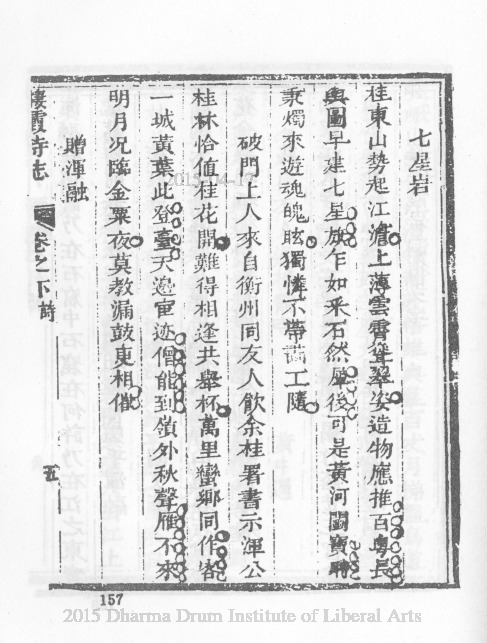 七星岩
桂東山勢起江上薄雲霄聳翠姿造物應推百粵長
輿圖早建七星旗乍如采石然犀後可是黃河鬭寶時
秉燭來遊魂魄眩獨憐不帶畫工隨
破門上人來自衡州同友人飲余桂署書示渾公
桂林恰值桂花開難得相逢共舉杯萬里蠻鄉同作客
一城黃葉此登臺天邊宦迹僧能到嶺外秋聲雁不來
明月況臨金粟夜莫教漏鼓更相催
贈渾融
棲霞寺志 卷之下 詩 五
157
2015 Dharma Drum Institute of Liberal Arts